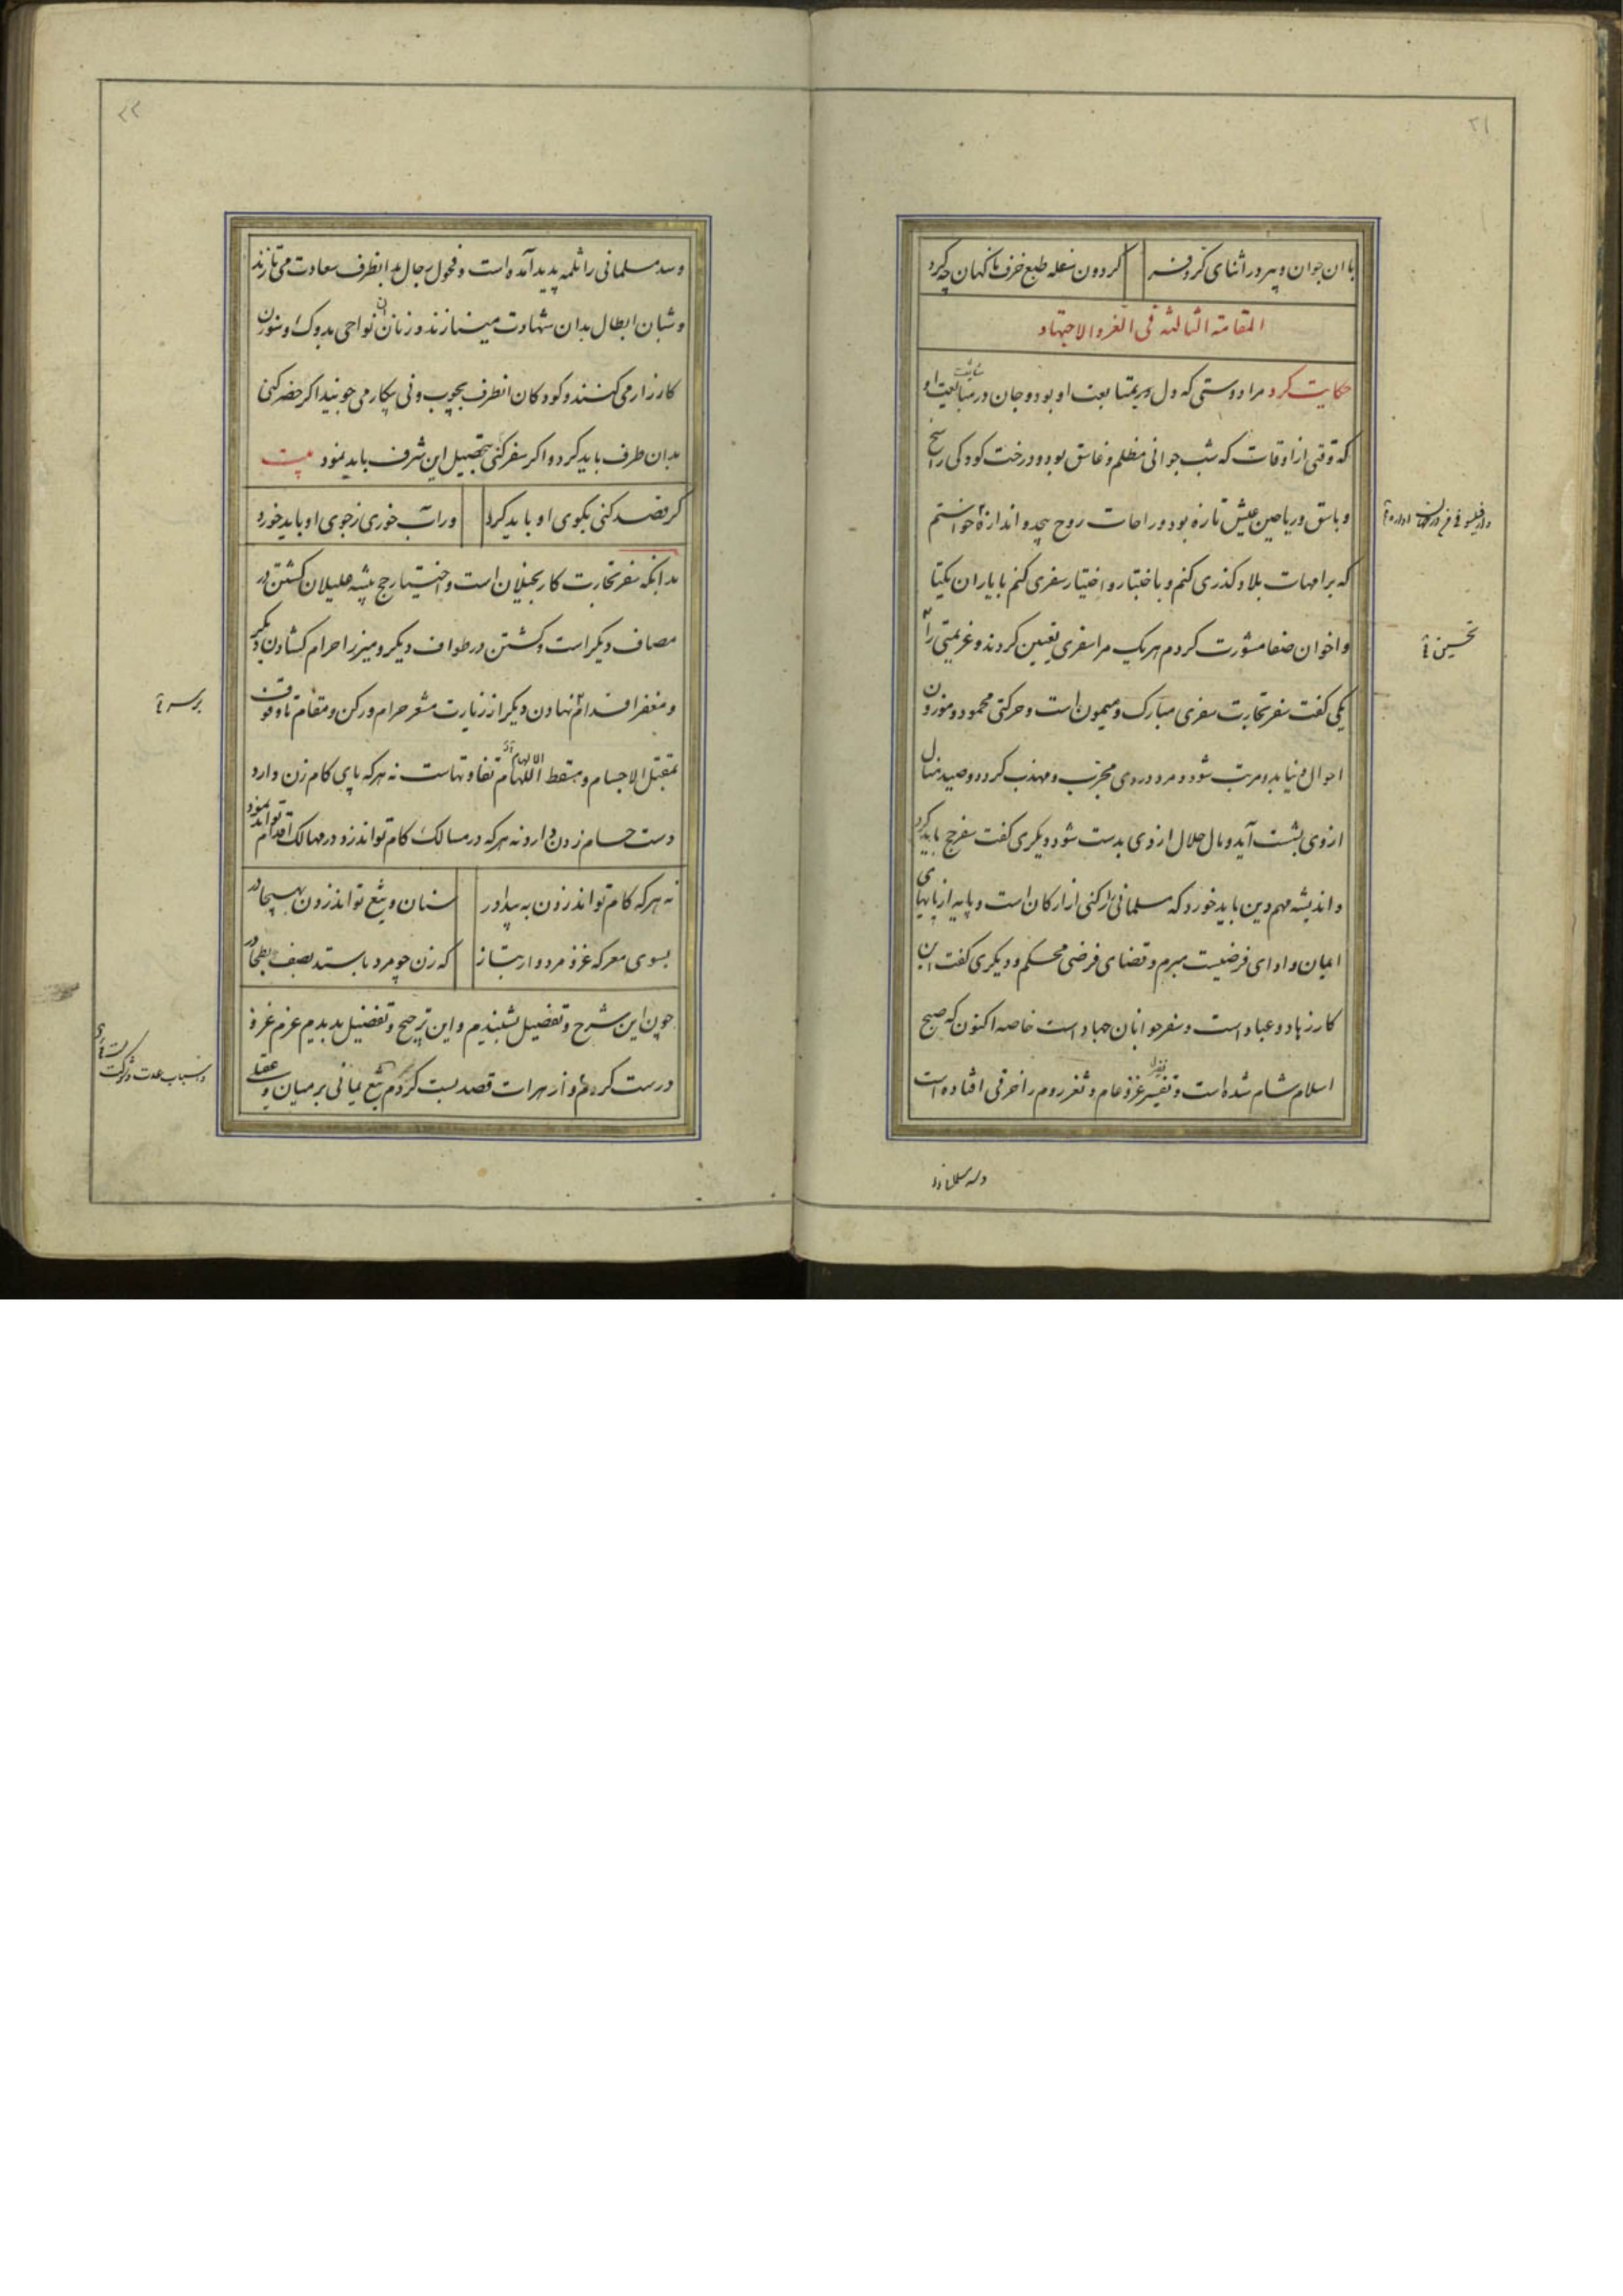 ۲۱
با ان جوان و پیر در اثنای کر و فر
گردون سفله طبع خرف ناکهان چه کرد
المقامة الثالثه فی الغزو الاجتهاد
حکایت کرد مرا دوستی که دل در متابعت او بود و جان در مبایعت او
که وقتی از اوقات که شب جوانی مظلم و غاسق بود و درخت کودکی راسخ
و باسق و ریاحین عیش تازه بود و راحات روح بیحد و اندازه خواستم
که بر امهات بلاد گذری کنم و باختبار و اختیار سفری کنم با یاران یکتا
و اخوان صفا مشورت کردم هر یک مرا سفری تعیین کردند و عزیمتی را
تحسین
یکی گفت سفر تجارت سفری مبارک و میمون است و حرکتی محمود و موزون
احوال دنیا بدو مرتب شود و مرد در وی مجرب و مهذب گردد و صید منال
از وی بشست آید و مال حلال از وی بدست شود و دیگری گفت سفر حج باید کرد
و اندیشه مهم دین باید خورد که مسلمانی را رکنی از ارکان است و پایه از پایهای
ایمان و ادای فرضیست مبرم و قضای فرضی محکم و دیگری گفت این
کار زهاد و عباد است و سفر جوانان جهاد است خاصه اکنون که صبح
اسلام شام شده است و نفیر غزو عام و ثغر روم را خرقی افتاده است
و سد مسلمانی را
۲۲
و سد مسلمانی را ثلمه پدید آمده است و فحول رجال بدانطرف سعادت می تازند
و شبان ابطال بدان شهادت مینازند و زنان ان نواحی بدوک و سوزن
کارزار می کنند و کودکان انطرف بچوب و نی پیکار می جویند اگر حضر کنی
بدان طرف باید کرد و اگر سفر کنی بتحصیل این شرف باید نمود بیت
گر قصد کنی بکوی او باید کرد
ور آب خوری ز جوی او باید خورد
بدانکه سفر تجارت کار بخیلان است و اختیار حج پیشه علیلان کشتن در
مصاف دیگر است و گشتن در طواف دیگر و میزر احرام گشادن دیگر
و مغفر اقدام نهادن دیگر از زیارت مشعر حرام و رکن و مقام تا وقوف
بر سر
بمقتل الاجسام و مسقط الهام تفاوتهاست نه هر که پای کام زن دارد
دست حسام زدن دارد نه هر که در مسالک کام تواند زد در مهالک اقدام تواند نمود
نه هر که کام تواند زدن به بیدا در
سنان و تیغ تواند زدن بهیجا در
بسوی معرکه غزو مردوار بتاز
که زن چو مرد بایستد بصف بطحا در
چون این شرح و تفضیل بشنیدم و این ترجیح و تفضیل بدیدم عزم غزو
درست کردم و از هرات قصد بست کردم تیغ یمانی بر میان و عقلی
و اسباب عدت و شوکت